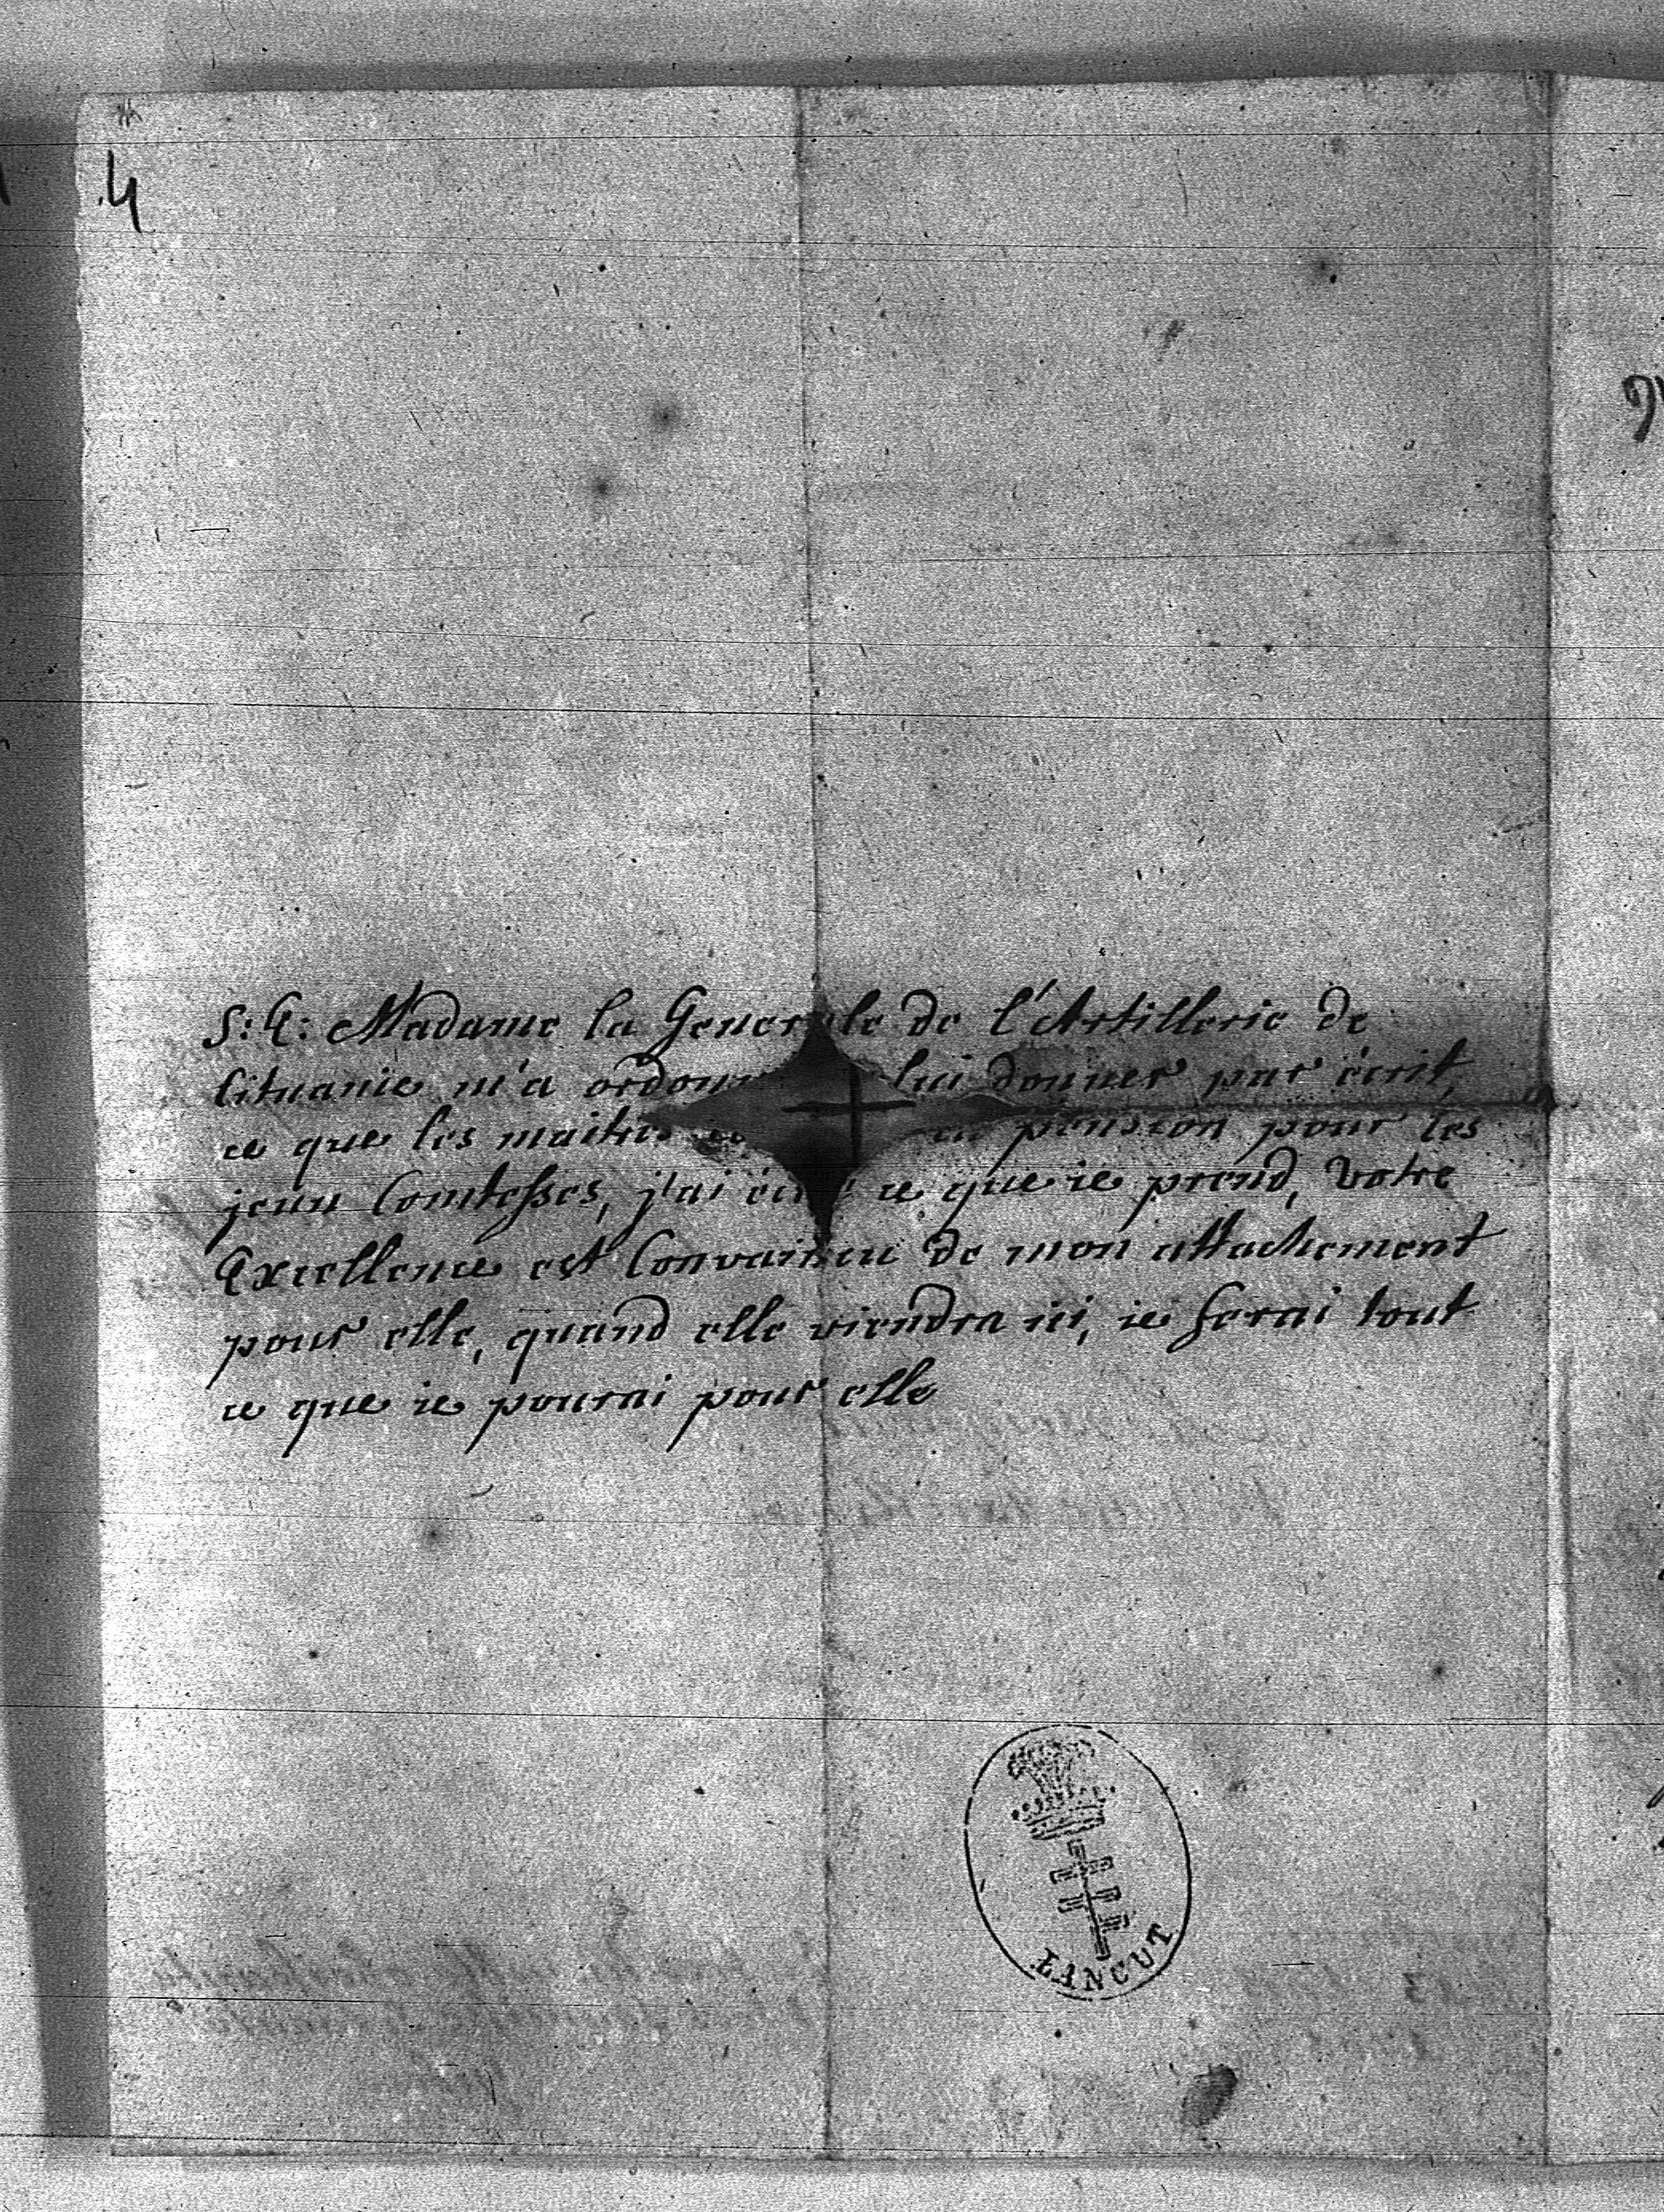 4
S: E: Madame la Generale de l'Artillerie de
lituanie m'a ordonn lui donner par écrit,
ce que les maitres pension pour les
jeun Comtesses, j'ai écri ce que ie prend, votre
Excellence est Convaincu de mon attachement
pour elle, quand elle viendra ici, ie ferai tout
ce que ie pourai pour elle
ŁAŃCUT